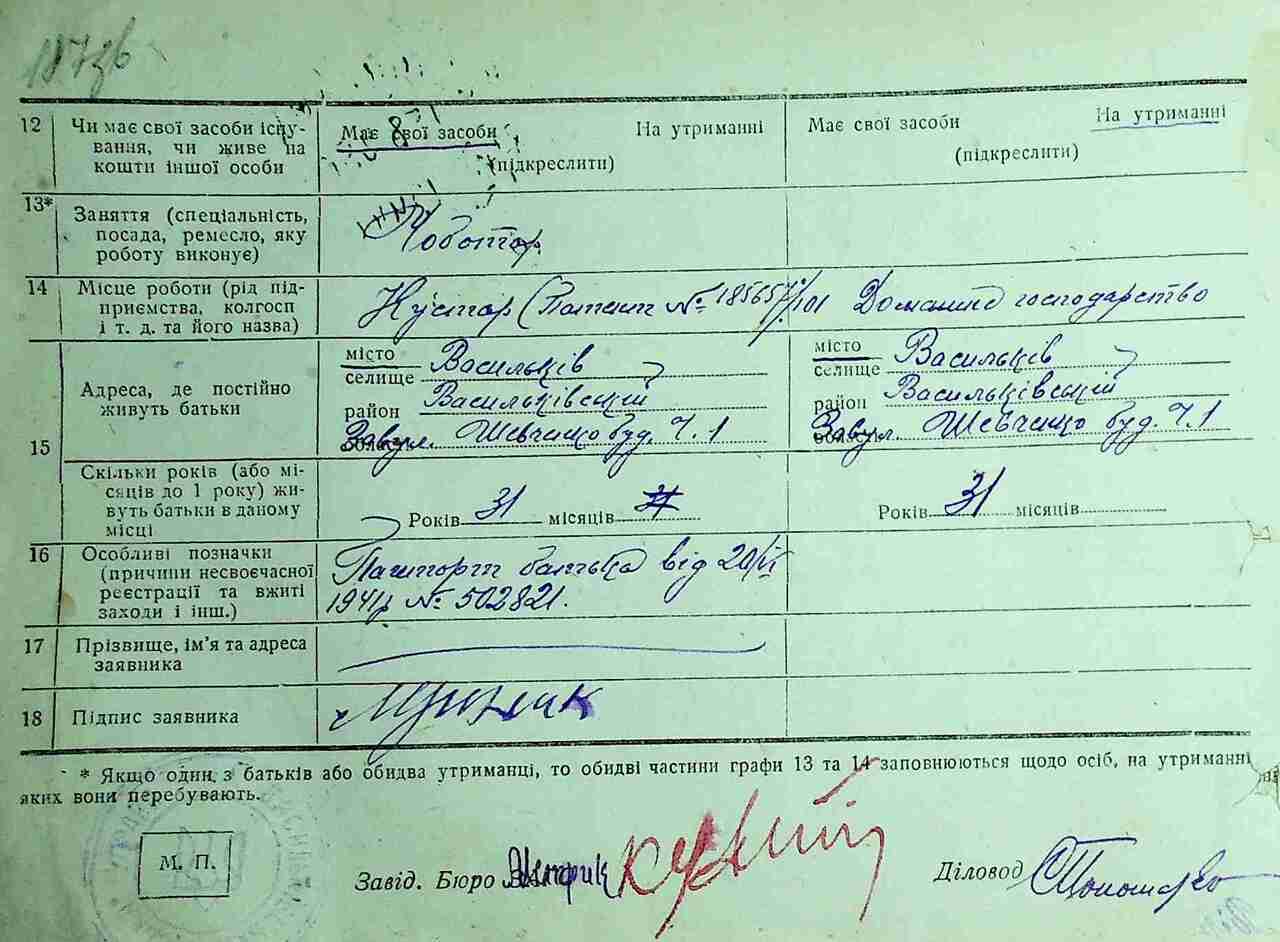 12 Чи має свої засоби існу-
вання, чи живе на
кошти іншої особи
Має свої засоби На утриманні
(підкреслити)
Має свої засоби На утриманні
(підкреслити)
13* Заняття (спеціальність,
посада, ремесло, яку
роботу виконує)
Чоботар
14 Місце роботи (рід під-
приємства, колгосп
і т. д. та його назва)
Кустар (Патент № 185657/101
Домашнє господарство
15 Адреса, де постійно
живуть батьки
місто Васильків
селище
район Васильківський
вул. Шевченко буд. Ч. 1
місто Васильків
селище
район Васильківський
вул. Шевченко буд. Ч. 1
Скільки років (або мі-
сяців до 1 року) жи-
вуть батьки в даному
місці
Років 31 місяців
Років 31 місяців
16 Особливі позначки
(причини несвоєчасної
реєстрації та вжиті
заходи і інш.)
Пашпорт батька від 20/VI
1941р № 502821.
17 Прізвище, ім'я та адреса
заявника
18 Підпис заявника
* Якщо один з батьків або обидва утриманці, то обидві частини графи 13 та 14 заповнюються щодо осіб, на утриманні
яких вони перебувають.
М. П.
Завід. Бюро
Діловод